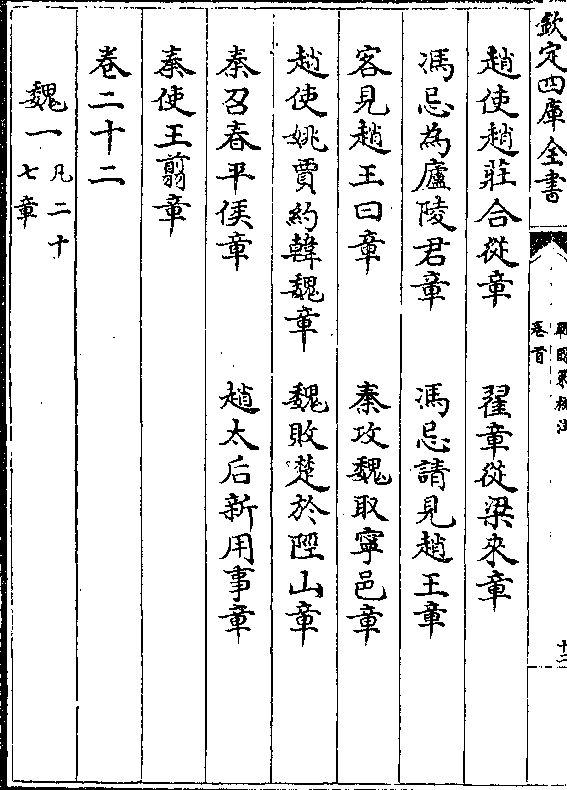 欽定四庫全書
戰國策校注
卷首
十二
趙使趙莊合從章 翟章從梁來章
馮忌為廬陵君章 馮忌請見趙王章
客見趙王曰章 秦攻魏取寧邑章
趙使姚賈約韓魏章 魏敗楚於陘山章
秦召春平侯章 趙太后新用事章
秦使王翦章
卷二十二
魏一 凡二十七章